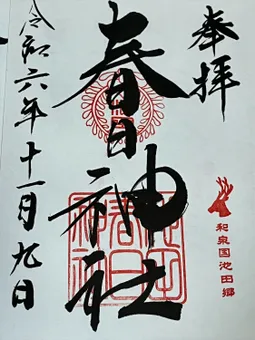 奉拝
春日神社
和泉国池田郷
令和六年十一月九日